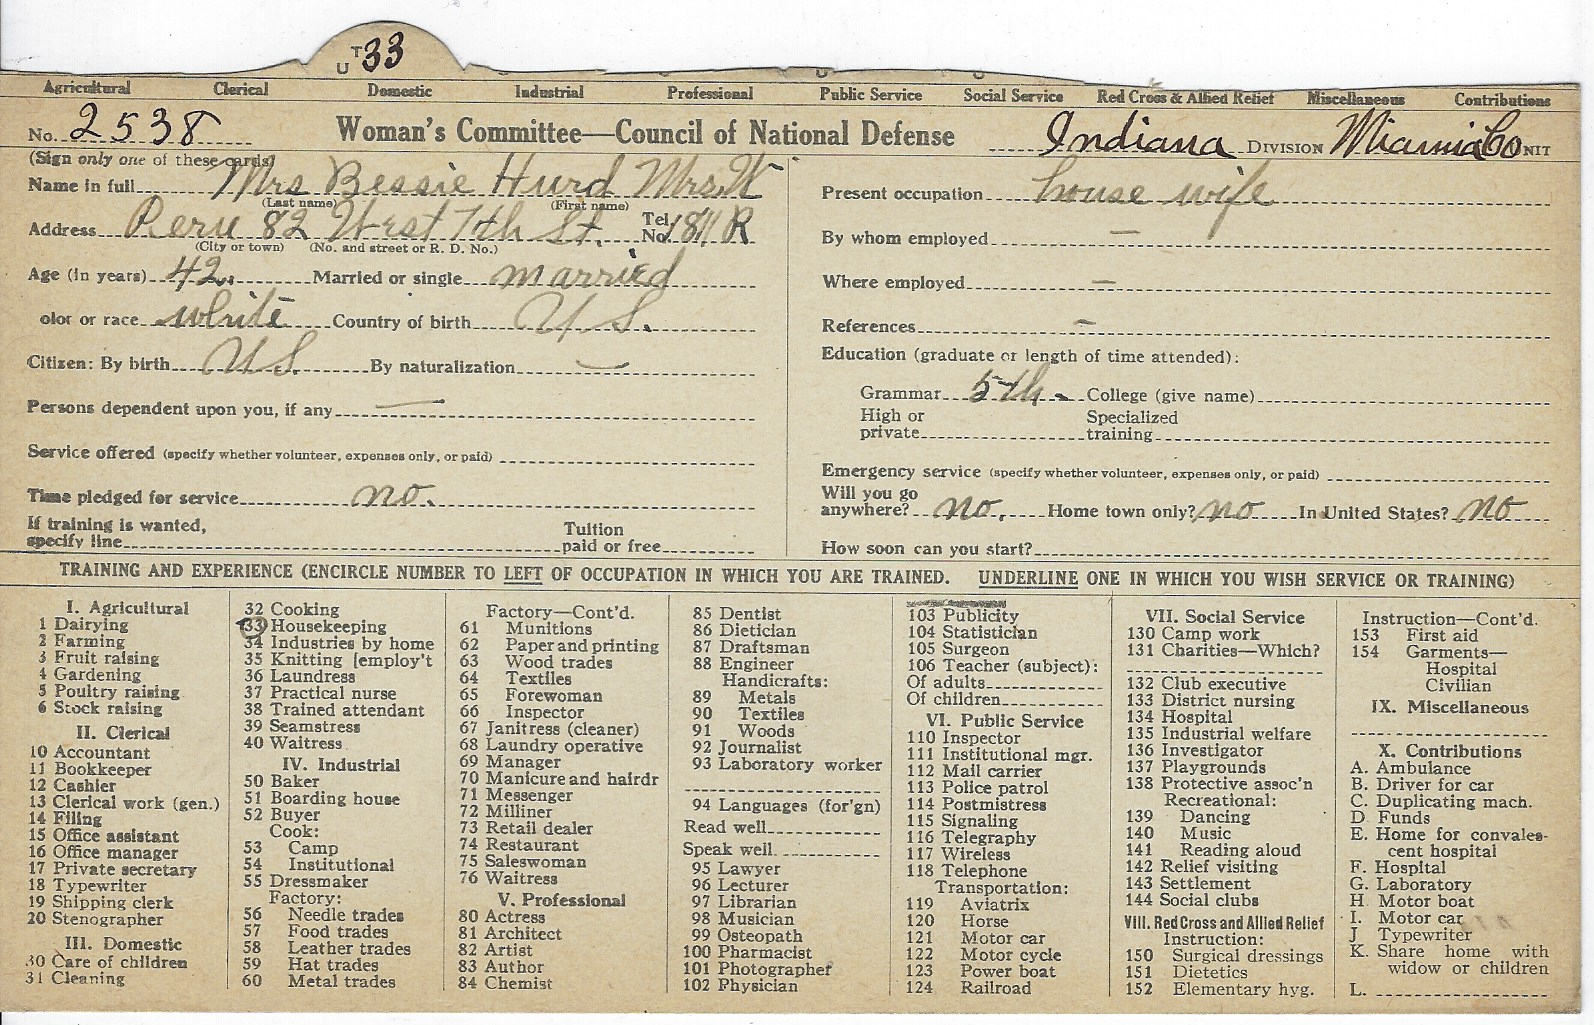 T U 33
Agricultural Clerical Domestic Industrial Professional Public Service Social Service Red Cross & Allied Relief Miscellaneous Contributions
No. 2538 Woman's Committee—Council of National Defense Indiana DIVISION Miami Co UNIT
(Sign only one of these cards)
Name in full Mrs Bessie Hurd Mrs. W
(Last name) (First name)
Address Peru 82 West 7th St. Tel. No. 1811 R
(City or town) (No. and street or R. D. No.)
Age (in years) 42. Married or single married
olor or race white Country of birth U S.
Citizen: By birth U S. By naturalization —
Persons dependent upon you, if any —
Service offered (specify whether volunteer, expenses only, or paid)
Time pledged for service no.
If training is wanted, specify line Tuition paid or free
Present occupation house wife
By whom employed —
Where employed —
References —
Education (graduate or length of time attended):
Grammar 5th. College (give name)
High or private Specialized training
Emergency service (specify whether volunteer, expenses only, or paid)
Will you go anywhere? no. Home town only? no In United States? no
How soon can you start?
TRAINING AND EXPERIENCE (ENCIRCLE NUMBER TO LEFT OF OCCUPATION IN WHICH YOU ARE TRAINED. UNDERLINE ONE IN WHICH YOU WISH SERVICE OR TRAINING)
I. Agricultural
1 Dairying
2 Farming
3 Fruit raising
4 Gardening
5 Poultry raising
6 Stock raising
II. Clerical
10 Accountant
11 Bookkeeper
12 Cashier
13 Clerical work (gen.)
14 Filing
15 Office assistant
16 Office manager
17 Private secretary
18 Typewriter
19 Shipping clerk
20 Stenographer
III. Domestic
30 Care of children
31 Cleaning
32 Cooking
33 Housekeeping
34 Industries by home
35 Knitting [employ't
36 Laundress
37 Practical nurse
38 Trained attendant
39 Seamstress
40 Waitress
IV. Industrial
50 Baker
51 Boarding house
52 Buyer
Cook:
53 Camp
54 Institutional
55 Dressmaker
Factory:
56 Needle trades
57 Food trades
58 Leather trades
59 Hat trades
60 Metal trades
Factory—Cont'd.
61 Munitions
62 Paper and printing
63 Wood trades
64 Textiles
65 Forewoman
66 Inspector
67 Janitress (cleaner)
68 Laundry operative
69 Manager
70 Manicure and hairdr
71 Messenger
72 Milliner
73 Retail dealer
74 Restaurant
75 Saleswoman
76 Waitress
V. Professional
80 Actress
81 Architect
82 Artist
83 Author
84 Chemist
85 Dentist
86 Dietician
87 Draftsman
88 Engineer
Handicrafts:
89 Metals
90 Textiles
91 Woods
92 Journalist
93 Laboratory worker
94 Languages (for'gn)
Read well
Speak well
95 Lawyer
96 Lecturer
97 Librarian
98 Musician
99 Osteopath
100 Pharmacist
101 Photographer
102 Physician
103 Publicity
104 Statistician
105 Surgeon
106 Teacher (subject):
Of adults
Of children
VI. Public Service
110 Inspector
111 Institutional mgr.
112 Mail carrier
113 Police patrol
114 Postmistress
115 Signaling
116 Telegraphy
117 Wireless
118 Telephone
Transportation:
119 Aviatrix
120 Horse
121 Motor car
122 Motor cycle
123 Power boat
124 Railroad
VII. Social Service
130 Camp work
131 Charities—Which?
132 Club executive
133 District nursing
134 Hospital
135 Industrial welfare
136 Investigator
137 Playgrounds
138 Protective assoc'n
Recreational:
139 Dancing
140 Music
141 Reading aloud
142 Relief visiting
143 Settlement
144 Social clubs
VIII. Red Cross and Allied Relief
Instruction:
150 Surgical dressings
151 Dietetics
152 Elementary hyg.
Instruction—Cont'd.
153 First aid
154 Garments—
Hospital
Civilian
IX. Miscellaneous
X. Contributions
A. Ambulance
B. Driver for car
C. Duplicating mach.
D. Funds
E. Home for convales-
cent hospital
F. Hospital
G. Laboratory
H. Motor boat
I. Motor car
J Typewriter
K. Share home with
widow or children
L.